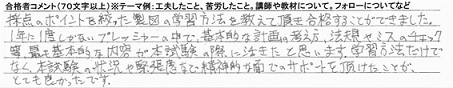 合格者コメント（70文字以上）※テーマ例：工夫したこと、苦労したこと。講師や教材について。フォローについてなど
採点のポイントを絞った製図の学習方法を教えて頂き合格することができました。
1年に1度しかないプレッシャーの中で、基本的な計画の考え方、法規やミスのチェック
等、最も基本的な内容が本試験の際に活きたと思います。学習方法だけで
なく、本試験の状況や緊張感など精神的な面でのサポートを頂けたことが、
とても良かったです。